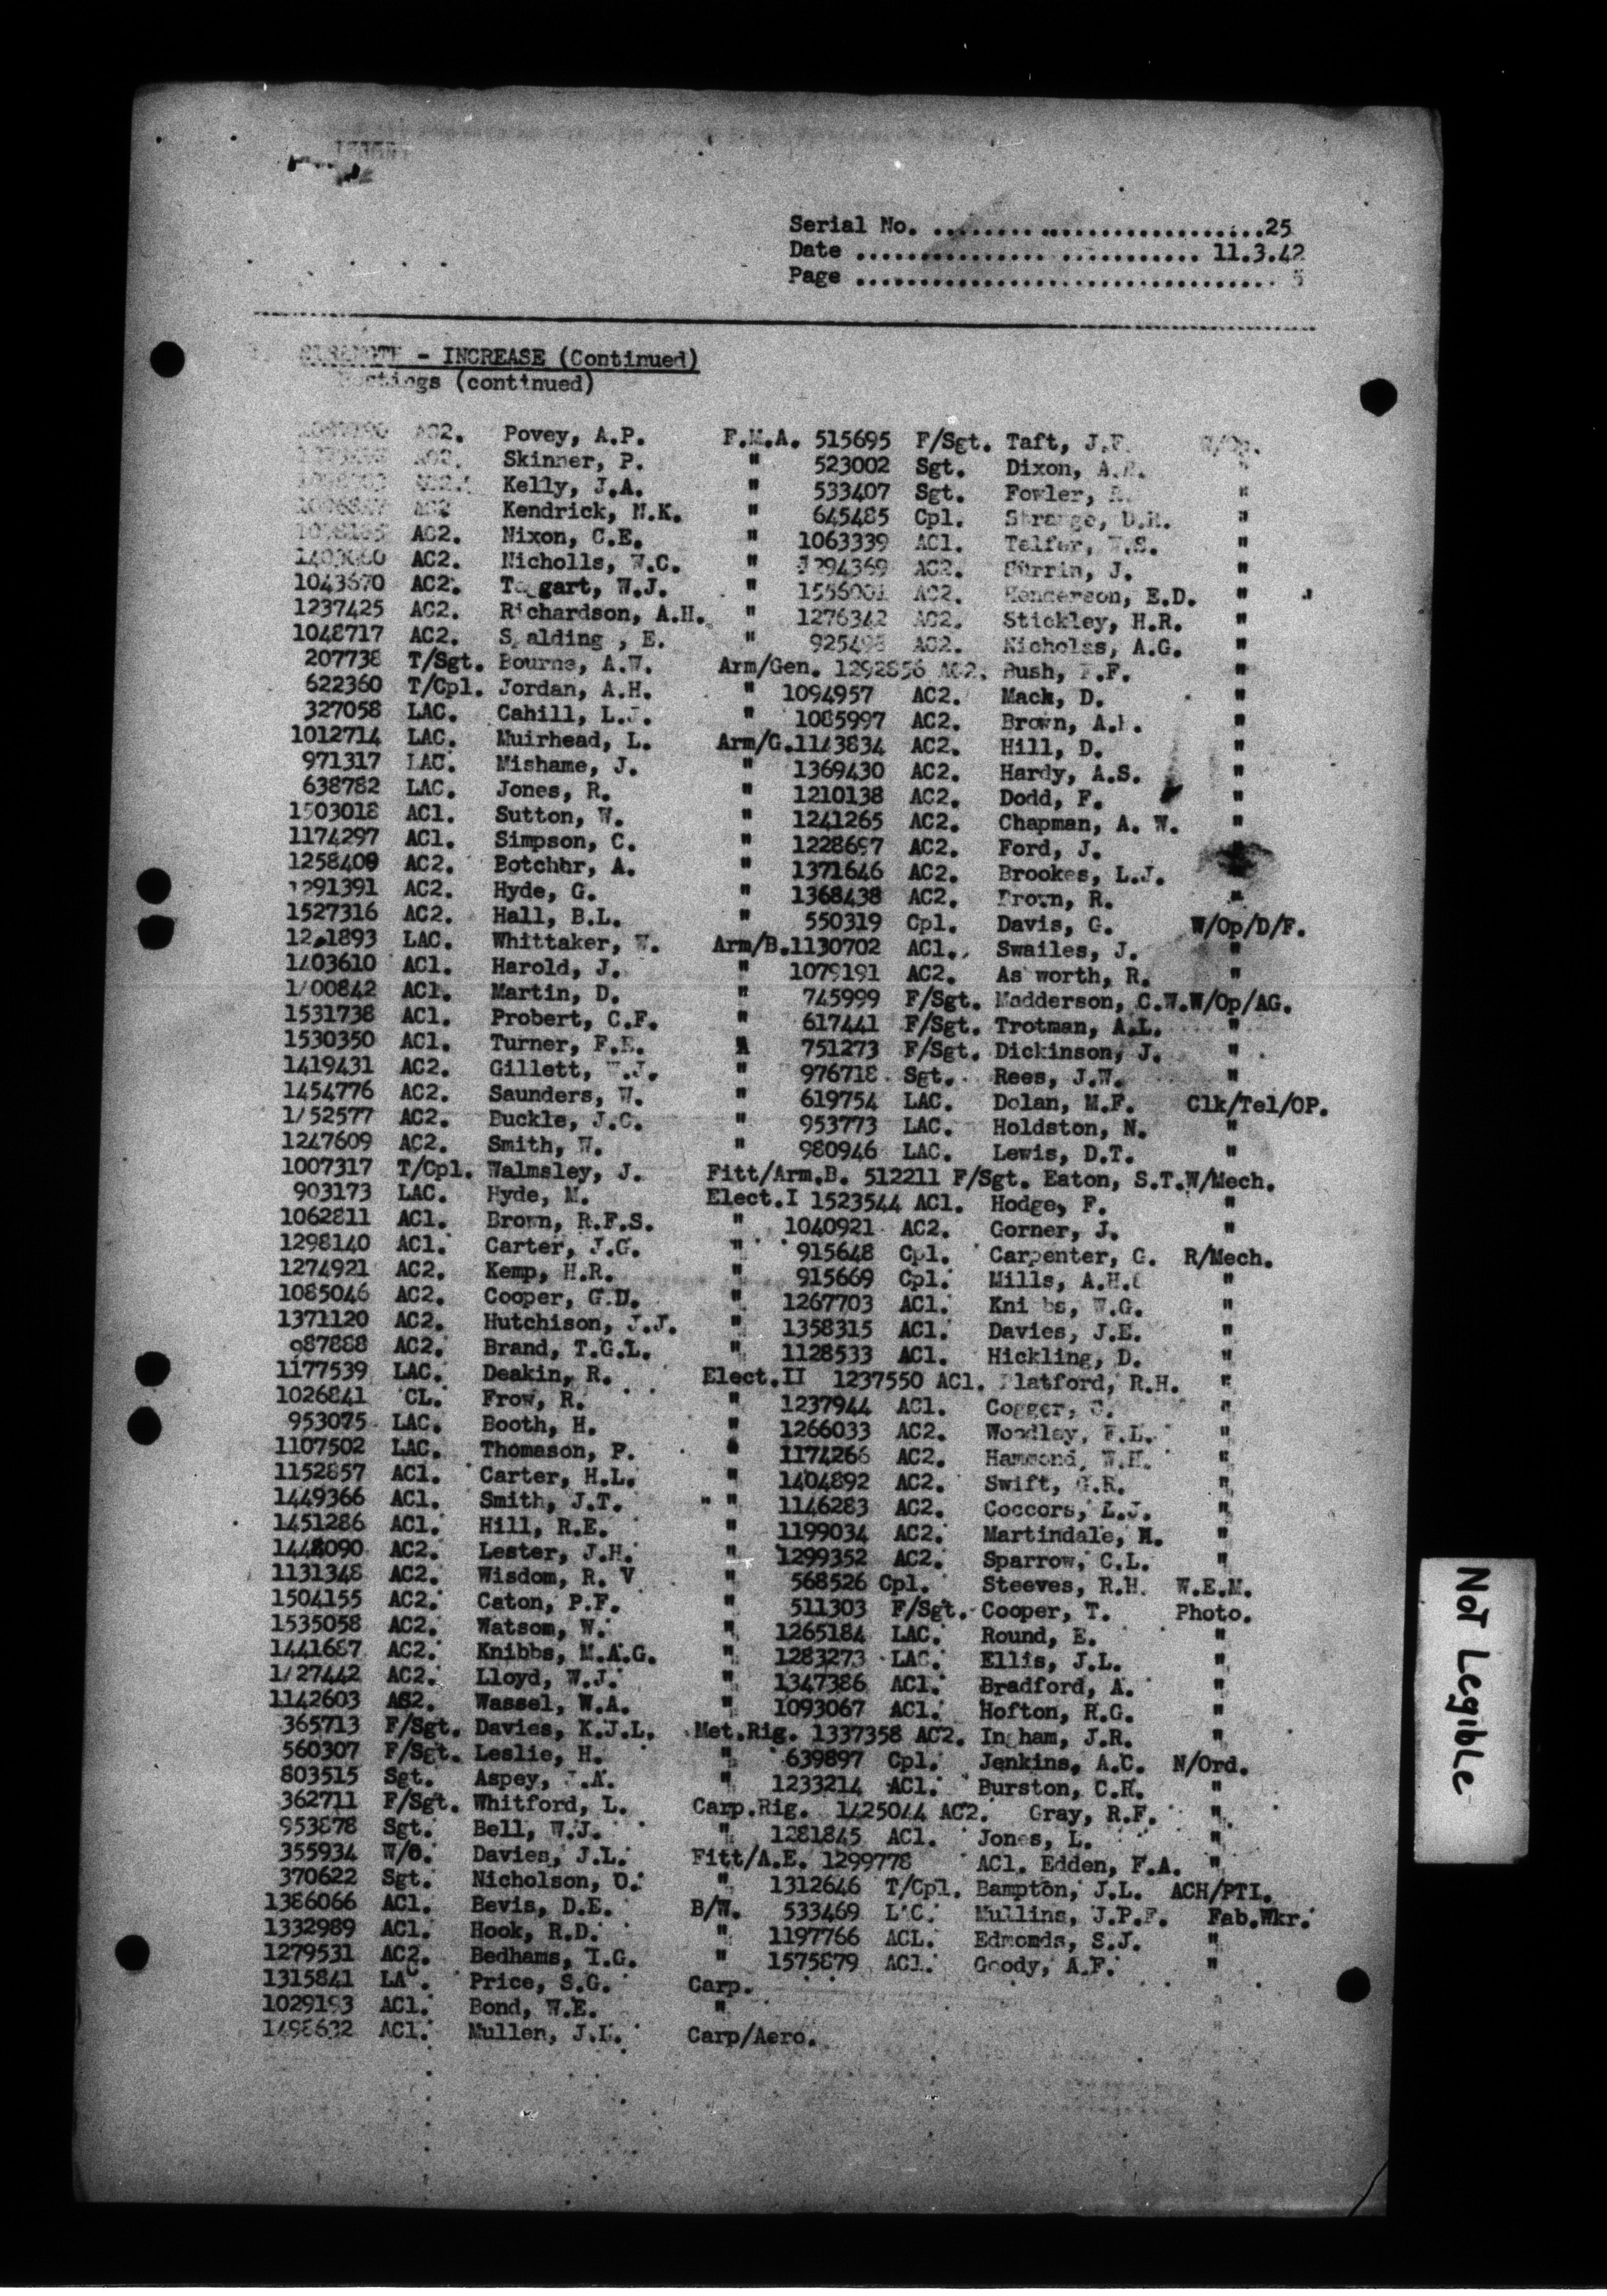 Serial No. ................................25
Date ................................ 11.3.42
Page ................................
- INCREASE (Continued)
(continued)
AC2. Povey, A.P. F.M.A. 515695 F/Sgt. Taft, J.F.
Skinner, P. " 523002 Sgt. Dixon, "
Kelly, J.A. " 533407 Sgt. Fowler, "
Kendrick, N.K. " 645485 Cpl. Strange, D.H. "
AC2. Nixon, C.E. " 1063339 AC1. Telfer, W.S. "
AC2. Nicholls, W.C. " 1294369 AC2. J. "
1043670 AC2. W.J. " AC2. Henderson, E.D. "
1237425 AC2. Richardson, A.H. " 1276342 AC2. Stickley, H.R. "
1048717 AC2. E. " AC2. Nicholas, A.G. "
207738 T/Sgt. Bourne, A.W. Arm/Gen. 1292856 AC2. Bush, "
622360 T/Cpl. Jordan, A.H. " 1094957 AC2. Mack, D. "
327058 LAC. Cahill, L.J. " 1085997 AC2. Brown, "
1012714 LAC. Muirhead, L. Arm/G. 1143834 AC2. Hill, D. "
971317 LAC. Mishame, J. " 1369430 AC2. Hardy, A.S. "
638782 LAC. Jones, R. " 1210138 AC2. Dodd, F. "
1503018 AC1. Sutton, W. " 1241265 AC2. Chapman, A. W. "
1174297 AC1. Simpson, C. " 1228697 AC2. Ford, J.
1258409 AC2. Botcher, A. " 1371646 AC2. Brookes, L.J.
1291391 AC2. Hyde, G. " 1368438 AC2. Brown, R. "
1527316 AC2. Hall, B.L. " 550319 Cpl. Davis, G. W/Op/D/F.
LAC. Whittaker, W. Arm/B. 1130702 AC1. Swailes, J. "
1403610 AC1. Harold, J. " 1079191 AC2. As worth, R. "
1400842 AC1. Martin, D. " 745999 F/Sgt. Madderson, C.W. W/Op/AG.
1531738 AC1. Probert, C.F. " 617441 F/Sgt. Trotman, A.L. "
1530350 AC1. Turner, F.E. " 751273 F/Sgt. Dickinson, J. "
1419431 AC2. Gillett, W.J. " 976718 Sgt. Rees, J.W. "
1454776 AC2. Saunders, W. " 619754 LAC. Dolan, M.F. Clk/Tel/OP.
1452577 AC2. Buckle, J.C. " 953773 LAC. Holdston, N. "
1247609 AC2. Smith, W. " 980946 LAC. Lewis, D.T. "
1007317 T/Cpl. Walmsley, J. Fitt/Arm.B. 512211 F/Sgt. Eaton, S.T. W/Mech.
903173 LAC. Hyde, M. Elect.I 1523544 AC1. Hodge, F. "
1062811 AC1. Brown, R.F.S. " 1040921 AC2. Gorner, J. "
1298140 AC1. Carter, J.G. " 915648 Cpl. Carpenter, G. R/Mech.
1274921 AC2. Kemp, H.R. " 915669 Cpl. Mills, "
1085046 AC2. Cooper, G.D. " 1267703 AC1. Kni bs, W.G. "
1371120 AC2. Hutchison, J.J. " 1358315 AC1. Davies, J.E. "
987888 AC2. Brand, T.G.L. " 1128533 AC1. Hickling, D. "
1177539 LAC. Deakin, R. Elect.II 1237550 AC1. R.H. "
1026841 CL. Frow, R. " 1237944 AC1. Cogger, "
953075 LAC. Booth, H. " 1266033 AC2. Woodley, F.L. "
1107502 LAC. Thomason, P. " 1174266 AC2. Hammond, W.H. "
1152857 AC1. Carter, H.L. " 1404892 AC2. Swift, G.R. "
1449366 AC1. Smith, J.T. " 1146283 AC2. Coccors, L.J. "
1451286 AC1. Hill, R.E. " 1199034 AC2. Martindale, H. "
1448090 AC2. Lester, J.H. " 1299352 AC2. Sparrow, C.L. "
1131348 AC2. Wisdom, R. V " 568526 Cpl. Steeves, R.H. W.E.M.
1504155 AC2. Caton, P.F. " 511303 F/Sgt. Cooper, T. Photo.
1535058 AC2. Watsom, W. " 1265184 LAC. Round, E. "
1441687 AC2. Knibbs, M.A.G. " 1283273 LAC. Ellis, J.L. "
1427442 AC2. Lloyd, W.J. " 1347386 AC1. Bradford, A. "
1142603 AC2. Wassel, W.A. " 1093067 AC1. Hofton, R.G. "
365713 F/Sgt. Davies, K.J.L. Met.Rig. 1337358 AC2. Ingham, J.R. "
560307 F/Sgt. Leslie, H. " 639897 Cpl. Jenkins, A.C. N/Ord.
803515 Sgt. Aspey, " 1233214 AC1. Burston, C.R. "
362711 F/Sgt. Whitford, L. Carp.Rig. 1425044 AC2. Gray, R.F. "
953878 Sgt. Bell, W.J. " 1281845 AC1. Jones, L. "
355934 W/O. Davies, J.L. Fitt/A.E. 1299778 AC1. Edden, F.A. "
370622 Sgt. Nicholson, O. " 1312646 T/Cpl. Bampton, J.L. ACH/PTI.
1386066 AC1. Bevis, D.E. B/W. 533469 L C. Mullins, J.P.F. Fab.Wkr.
1332989 AC1. Hook, R.D. " 1197766 ACL. Edmonds, S.J. "
1279531 AC2. Bedhams, I.G. " 1575879 AC1. Goody, A.F. "
1315841 LAC. Price, S.G. Carp.
1029193 AC1. Bond, W.E. "
1498632 AC1. Mullen, J.L. Carp/Aero.
NOT LEGIBLE